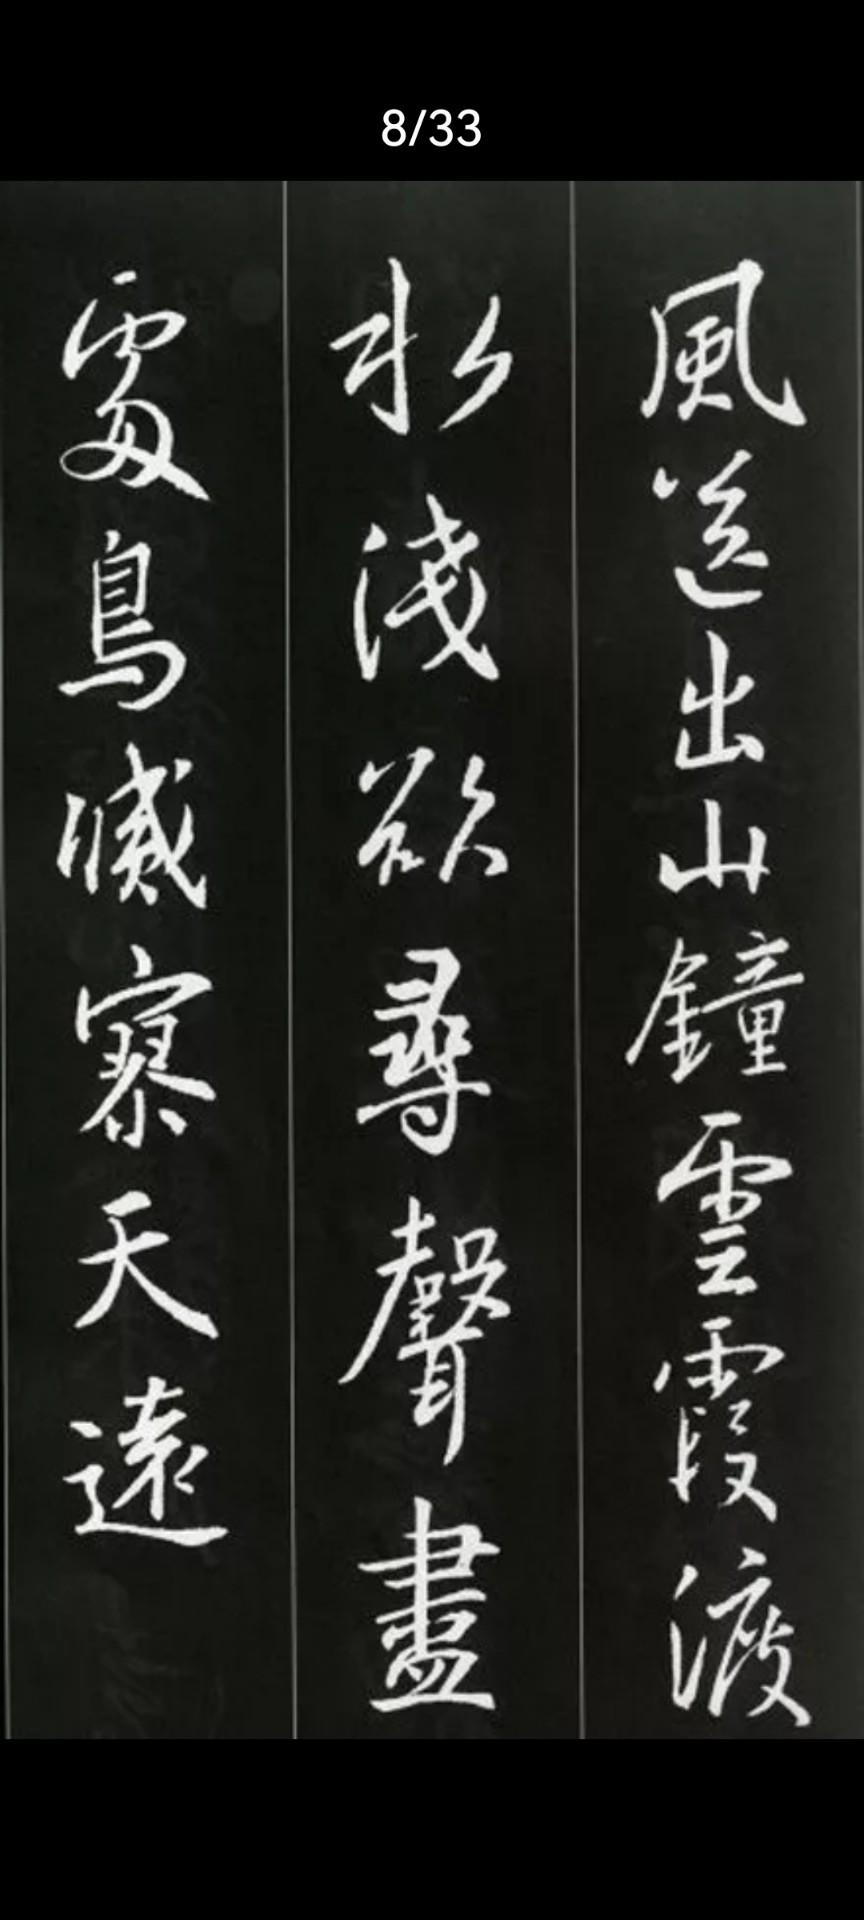 8/33
風送出山鐘雲霞渡
水淺欲尋聲盡
處鳥滅寥天遠